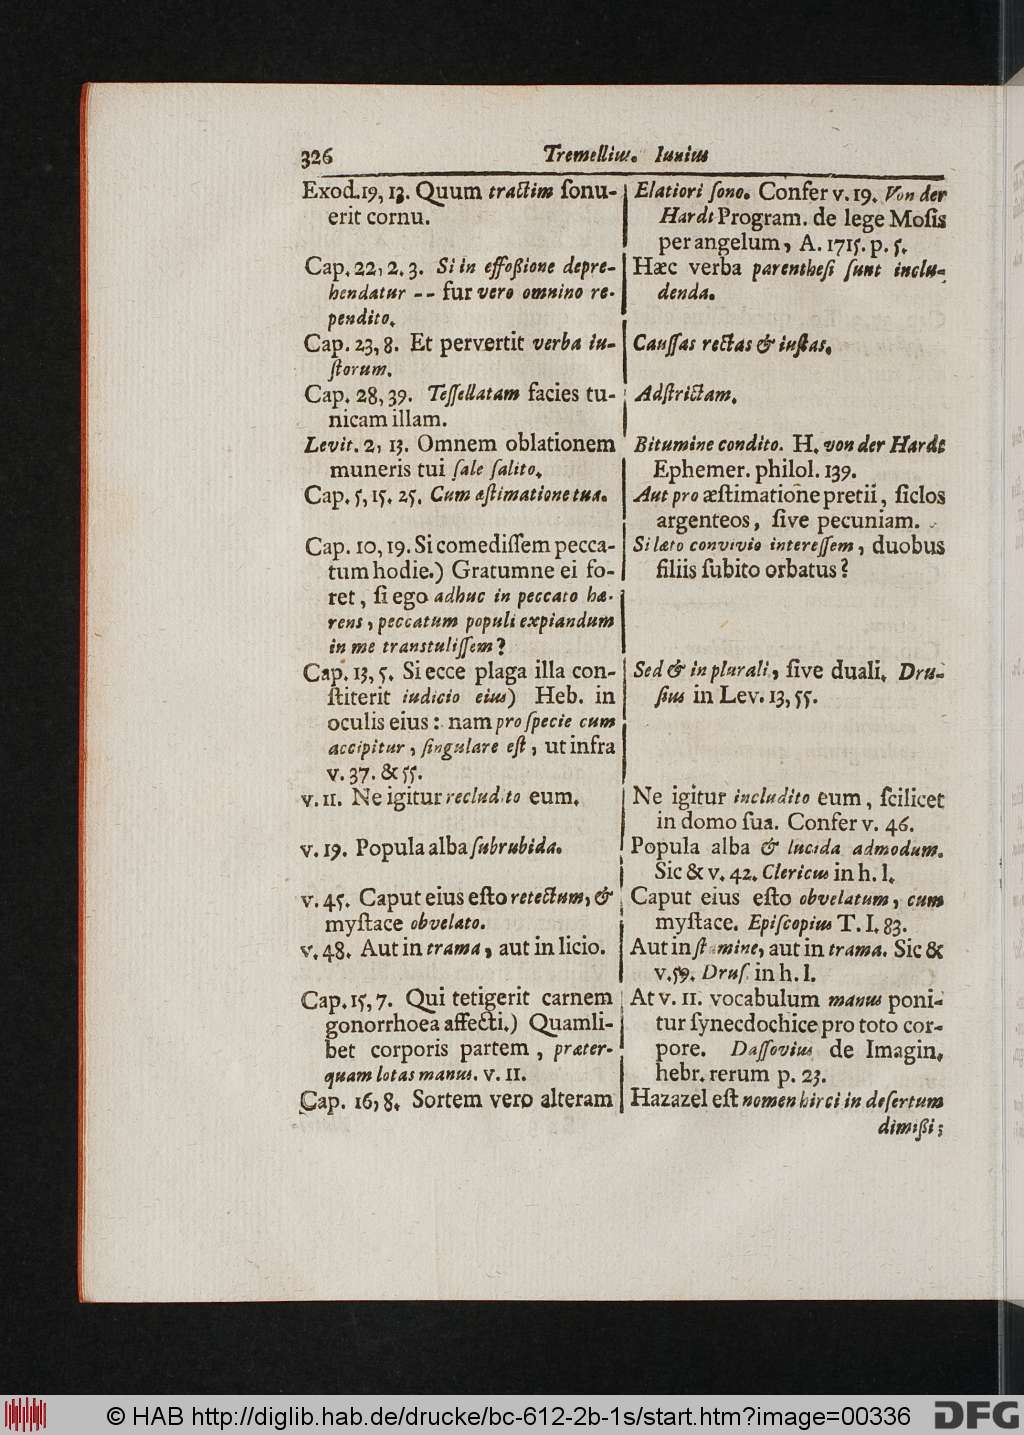 326 Tremellius. Iunius
Exod. 19, 13. Quum tractim ſonu-
erit cornu.
Elatiori ſono. Confer v. 19. Von der
Hardt Program. de lege Moſis
per angelum, A. 1715. p. 5.
Cap. 22, 2. 3. Si in effoßione depre-
hendatur -- fur vero omnino re-
pendito.
Hæc verba parentheſi ſunt inclu-
denda.
Cap. 23, 8. Et pervertit verba iu-
ſtorum.
Cauſſas rectas & iuſtas.
Cap. 28, 39. Teſſellatam facies tu-
nicam illam.
Adſtrictam.
Levit. 2, 13. Omnem oblationem
muneris tui ſale ſalito.
Bitumine condito. H. von der Hardt
Ephemer. philol. 139.
Cap. 5, 15. 25. Cum æſtimatione tua.
Aut pro æſtimatione pretii, ſiclos
argenteos, ſive pecuniam.
Cap. 10, 19. Si comediſſem pecca-
tum hodie.) Gratumne ei fo-
ret, ſi ego adhuc in peccato hæ-
rens, peccatum populi expiandum
in me transtuliſſem?
Si læto convivio intereſſem, duobus
filiis ſubito orbatus?
Cap. 13, 5. Si ecce plaga illa con-
ſtiterit iudicio eius) Heb. in
oculis eius: nam pro ſpecie cum
accipitur, ſingulare eſt, ut infra
v. 37. & 55.
Sed & in plurali, ſive duali. Dru-
ſius in Lev. 13, 55.
v. 11. Ne igitur recludito eum.
Ne igitur includito eum, ſcilicet
in domo ſua. Confer v. 46.
v. 19. Popula alba ſubrubida.
Popula alba & lucida admodum.
Sic & v. 42. Clericus in h. l.
v. 45. Caput eius eſto retectum, &
myſtace obvelato.
Caput eius eſto obvelatum, cum
myſtace. Epiſcopius T. I. 83.
v. 48. Aut in trama, aut in licio.
Aut in ſtamine, aut in trama. Sic &
v. 59. Druſ. in h. l.
Cap. 15, 7. Qui tetigerit carnem
gonorrhoea affecti.) Quamli-
bet corporis partem, præter-
quam lotas manus. v. 11.
At v. 11. vocabulum manus poni-
tur ſynecdochice pro toto cor-
pore. Daſſovius de Imagin.
hebr. rerum p. 23.
Cap. 16, 8. Sortem vero alteram
Hazazel eſt nomen hirci in deſertum
dimißi;
© HAB http://diglib.hab.de/drucke/bc-612-2b-1s/start.htm?image=00336
DFG